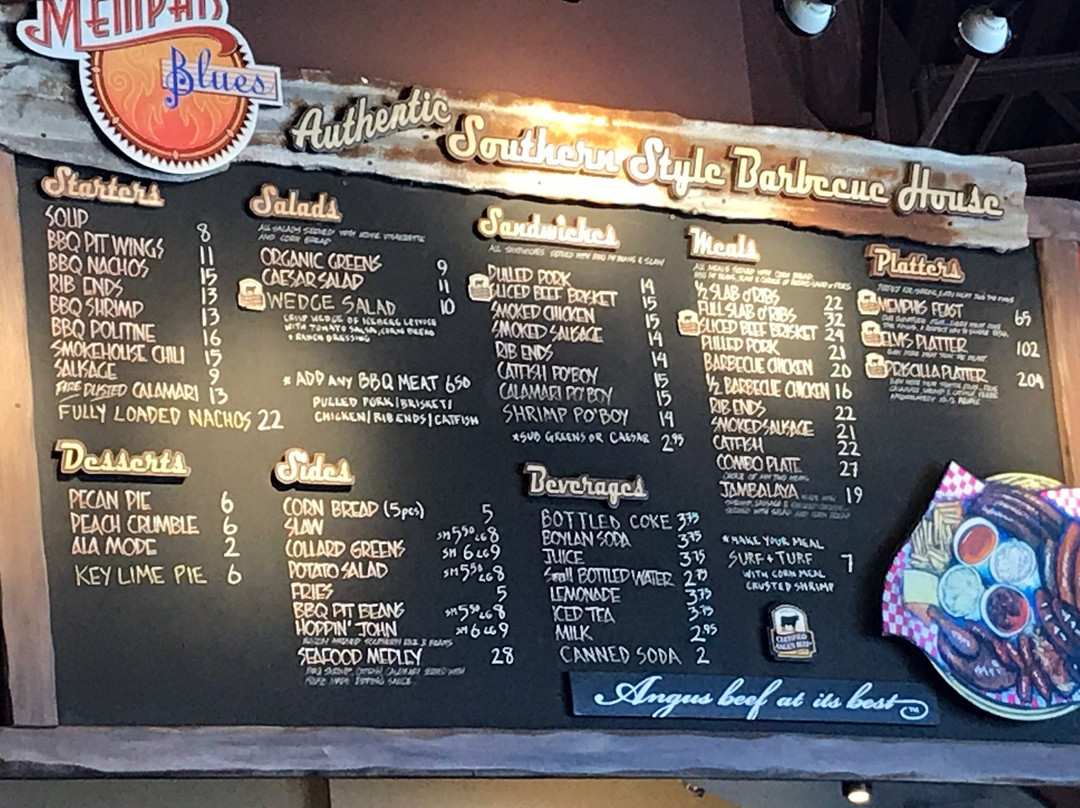 MEMPHIS
Blues
Authentic Southern Style Barbecue House
Starters
SOUP 8
BBQ PIT WINGS 11
BBQ NACHOS 15
RIB ENDS 13
BBQ SHRIMP 13
BBQ POUTINE 16
SMOKEHOUSE CHILI 15
SAUSAGE 9
DUSTED CALAMARI 13
FULLY LOADED NACHOS 22
Salads
ALL SALADS SERVED WITH HOUSE VINAIGRETTE
AND CORN BREAD
ORGANIC GREENS 9
CAESAR SALAD 11
WEDGE SALAD 10
CRISP WEDGE OF ICEBERG LETTUCE
WITH TOMATO SALSA, CORN BREAD
+ RANCH DRESSING
* ADD ANY BBQ MEAT 650
PULLED PORK/BRISKET/
CHICKEN/RIB ENDS/CATFISH
Sandwiches
ALL SANDWICHES SERVED WITH BBQ PIT BEANS & SLAW
PULLED PORK 14
SLICED BEEF BRISKET 15
SMOKED CHICKEN 15
SMOKED SAUSAGE 14
RIB ENDS 14
CATFISH PO'BOY 15
CALAMARI PO'BOY 15
SHRIMP PO'BOY 14
*SUB GREENS OR CAESAR 2.95
Meals
ALL MEALS SERVED WITH CORN BREAD,
BBQ PIT BEANS, SLAW & CHOICE OF POTATO SALAD or FRIES
½ SLAB o'RIBS 22
FULL SLAB o'RIBS 32
SLICED BEEF BRISKET 24
PULLED PORK 21
BARBECUE CHICKEN 20
½ BARBECUE CHICKEN 16
RIB ENDS 22
SMOKED SAUSAGE 21
CATFISH 22
COMBO PLATE 27
CHOICE OF ANY TWO MEATS
JAMBALAYA 19
*MAKE YOUR MEAL
SURF + TURF 7
WITH CORN MEAL
CRUSTED SHRIMP
Platters
MEMPHIS FEAST 65
ELVIS PLATTER 102
PRISCILLA PLATTER 204
Desserts
PECAN PIE 6
PEACH CRUMBLE 6
ALA MODE 2
KEY LIME PIE 6
Sides
CORN BREAD (5pcs) 5
SLAW sm 5.50 LG 8
COLLARD GREENS sm 6 LG 9
POTATO SALAD sm 5.50 LG 8
FRIES 5
BBQ PIT BEANS sm 5.50 LG 8
HOPPIN' JOHN sm 6 LG 9
SEAFOOD MEDLEY 28
Beverages
BOTTLED COKE 3.75
BOYLAN SODA 3.75
JUICE 3.75
Small BOTTLED WATER 2.75
LEMONADE 3.75
ICED TEA 3.75
MILK 2.95
CANNED SODA 2
CERTIFIED
ANGUS BEEF
Angus beef at its best™